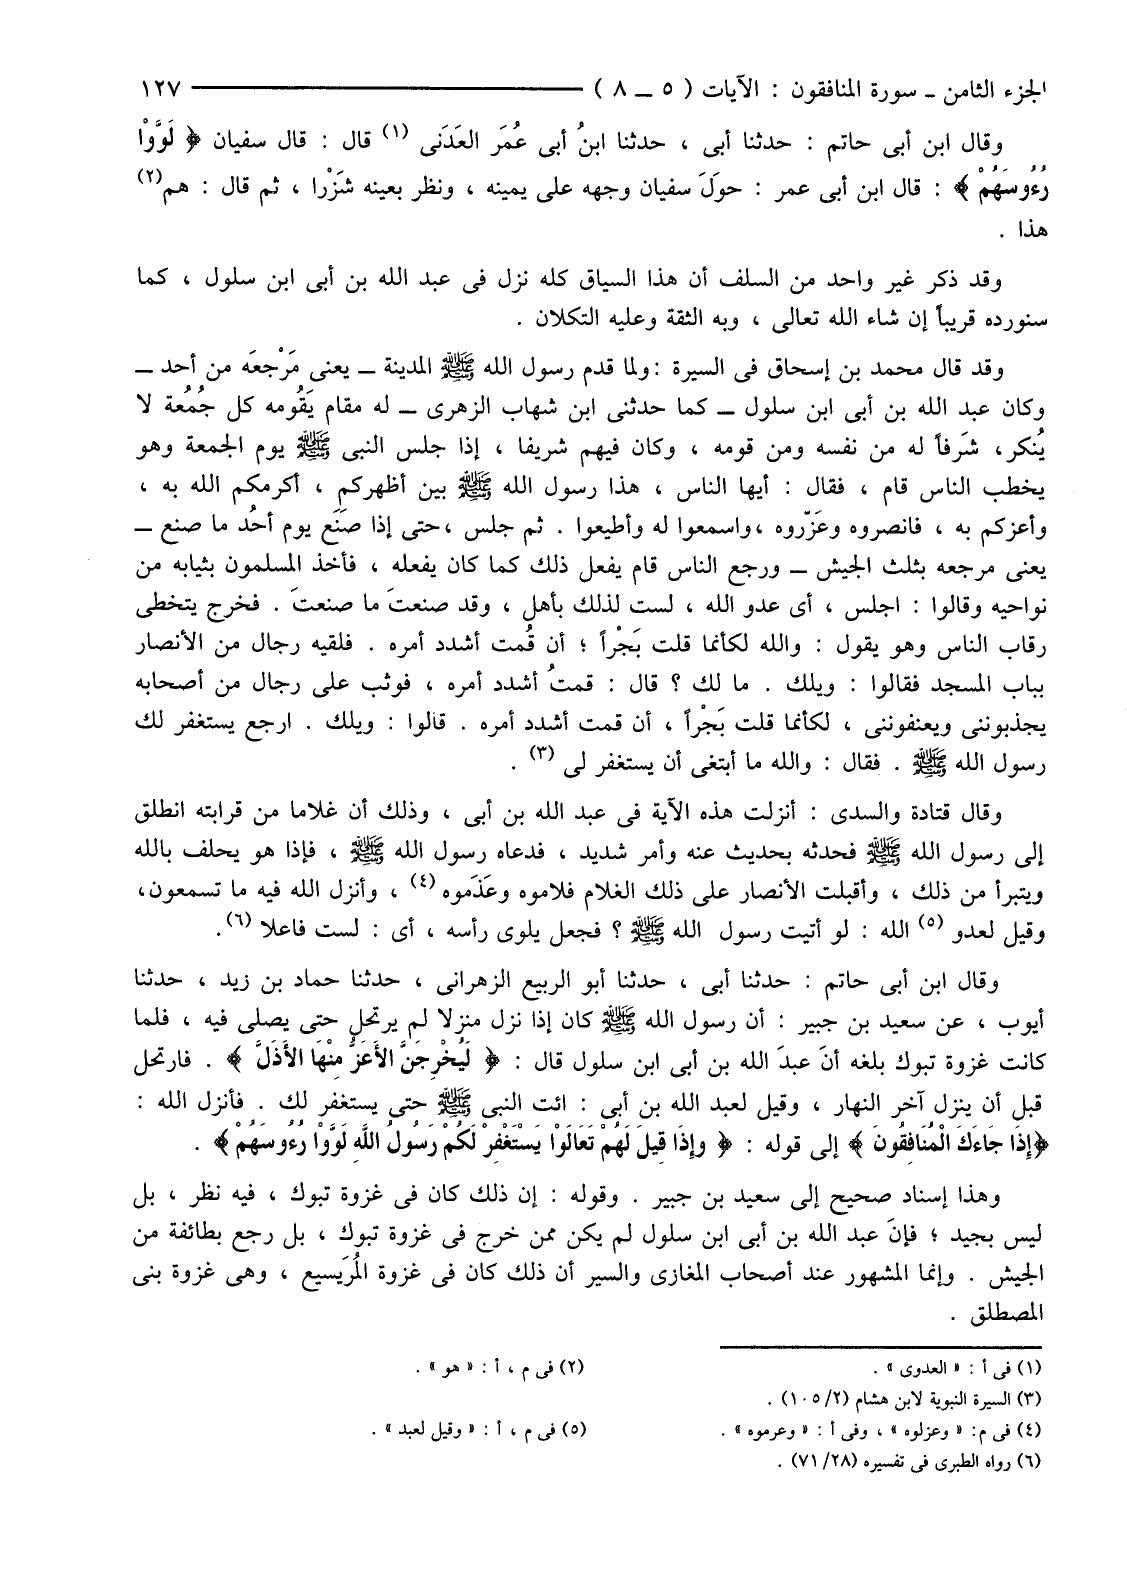 الجزء الثامن - سورة المنافقون : الآيات ( ٥ ــ ٨ ) ١٢٧
وقال ابن أبى حاتم : حدثنا أبى ، حدثنا ابنُ أبى عُمَر العَدَنى (١) قال : قال سفيان ﴿ لَوَّوْا
رُءُوسَهُمْ ﴾ : قال ابن أبى عمر : حوَلَ سفيان وجهه على يمينه ، ونظر بعينه شَزْرا ، ثم قال : هم(٢)
هذا .
وقد ذكر غير واحد من السلف أن هذا السياق كله نزل فى عبد الله بن أبى ابن سلول ، كما
سنورده قريباً إن شاء الله تعالى ، وبه الثقة وعليه التكلان .
وقد قال محمد بن إسحاق فى السيرة :ولما قدم رسول الله ﷺ المدينة ــ يعنى مَرْجعَه من أحد ــ
وكان عبد الله بن أبى ابن سلول ــ كما حدثنى ابن شهاب الزهرى ــ له مقام يَقُومه كل جُمُعة لا
يُنكر، شَرَفاً له من نفسه ومن قومه ، وكان فيهم شريفا ، إذا جلس النبى ﷺ يوم الجمعة وهو
يخطب الناس قام ، فقال : أيها الناس ، هذا رسول الله ﷺ بين أظهركم ، أكرمكم الله به ،
وأعزكم به ، فانصروه وعَزّروه ،واسمعوا له وأطيعوا . ثم جلس ،حتى إذا صَنَع يوم أحُد ما صنع ــ
يعنى مرجعه بثلث الجيش ــ ورجع الناس قام يفعل ذلك كما كان يفعله ، فأخذ المسلمون بثيابه من
نواحيه وقالوا : اجلس ، أى عدو الله ، لست لذلك بأهل ، وقد صنعتَ ما صنعتَ . فخرج يتخطى
رقاب الناس وهو يقول : والله لكأنما قلت بَجْراً ؛ أن قُمت أشدد أمره . فلقيه رجال من الأنصار
بباب المسجد فقالوا : ويلك . ما لك ؟ قال : قمتُ أشدد أمره ، فوثب على رجال من أصحابه
يجذبوننى ويعنفوننى ، لكأنما قلت بَجْراً ، أن قمت أشدد أمره . قالوا : ويلك . ارجع يستغفر لك
رسول الله ﷺ . فقال : والله ما أبتغى أن يستغفر لى (٣) .
وقال قتادة والسدى : أنزلت هذه الآية فى عبد الله بن أبى ، وذلك أن غلاما من قرابته انطلق
إلى رسول الله ﷺ فحدثه بحديث عنه وأمر شديد ، فدعاه رسول الله ﷺ ، فإذا هو يحلف بالله
ويتبرأ من ذلك ، وأقبلت الأنصار على ذلك الغلام فلاموه وعَذَموه (٤) ، وأنزل الله فيه ما تسمعون،
وقيل لعدو (٥) الله : لو أتيت رسول الله ﷺ ؟ فجعل يلوى رأسه ، أى : لست فاعلا (٦).
وقال ابن أبى حاتم : حدثنا أبى ، حدثنا أبو الربيع الزهرانى ، حدثنا حماد بن زيد ، حدثنا
أيوب ، عن سعيد بن جبير : أن رسول الله ﷺ كان إذا نزل منزلا لم يرتحل حتى يصلى فيه ، فلما
كانت غزوة تبوك بلغه أنَ عبدَ الله بن أبى ابن سلول قال : ﴿ لَيُخْرِجَنَّ الأَعَزُّ مِنْهَا الأَذَلَّ ﴾ . فارتحل
قبل أن ينزل آخر النهار ، وقيل لعبد الله بن أبى : ائت النبى ﷺ حتى يستغفر لك . فأنزل الله :
﴿إِذَا جَاءَكَ الْمُنَافِقُونَ ﴾ إلى قوله : ﴿ وَإِذَا قِيلَ لَهُمْ تَعَالَوْا يَسْتَغْفِرْ لَكُمْ رَسُولُ اللَّهِ لَوَّوْا رُءُوسَهُمْ ﴾ .
وهذا إسناد صحيح إلى سعيد بن جبير . وقوله : إن ذلك كان فى غزوة تبوك ، فيه نظر ، بل
ليس بجيد ؛ فإنَ عبد الله بن أبى ابن سلول لم يكن ممن خرج فى غزوة تبوك ، بل رجع بطائفة من
الجيش . وإنما المشهور عند أصحاب المغازى والسير أن ذلك كان فى غزوة المُرَيسيع ، وهى غزوة بنى
المصطلق .
(١) فى أ : « العدوى » . (٢) فى م ، أ : « هو » .
(٣) السيرة النبوية لابن هشام (٢/ ١٠٥) .
(٤) فى م: « وعزلوه » ، وفى أ : « وعرموه » . (٥) فى م ، أ : « وقيل لعبد » .
(٦) رواه الطبرى فى تفسيره (٢٨/ ٧١) .